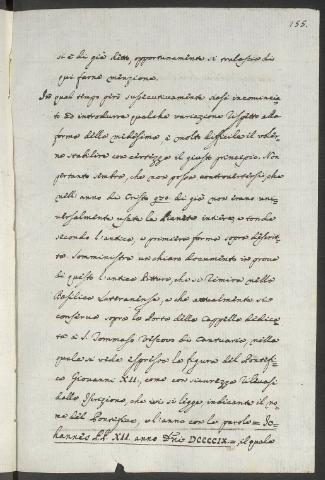 155.
si è di già detto, opportunamente si tralascia di
qui farne menzione.
In qual tempo però sussecutivamente siasi incomincia-
to ad introdurre qualche variazione rispetto alla
forma delle medesime, è molto difficile il poter-
ne stabilire con certezza il giusto principio. Non
pertanto sembra, che non possa controvertersi, che
nell' anno di Cristo 970. di già non erano uni-
versalmente usate le Pianete intiere, e tonde
secondo l'antica, e primiera forma sopra descrit-
ta. Somministra un chiaro documento in prova
di questo l'antica Pittura, che si rimira nella
Basilica Lateranense, e che attualmente si
conserva sopra la Porta della Cappella dedica-
ta a S. Tommaso Vescovo di Cantuaria, nella
quale si vede espressa la figura del Pontefi-
ce Giovanni XII., come con sicurezza rilevasi
dalla Iscrizione, che ivi si legge, indicante il no-
me del Pontefice, e l'anno con le parole = Jo-
hannes PP. XII. anno Dni DCCCCLX. = il quale